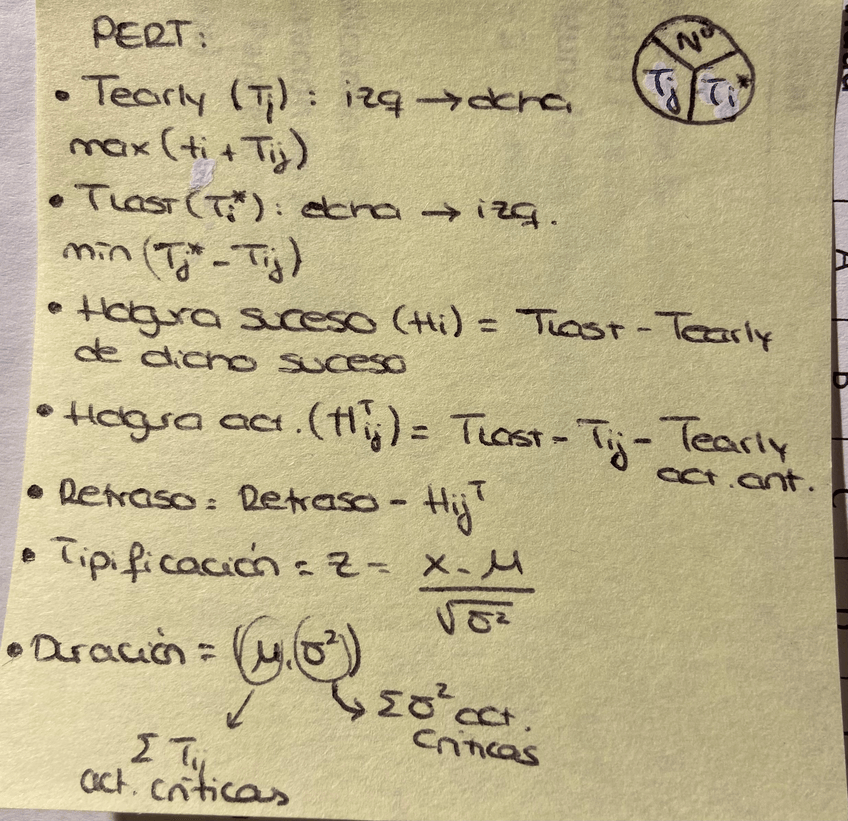 PERT:
Nº
Tj Ti*
• Tearly (Tj): izq → dcha
max (ti + Tij)
• Tlast (Ti*): dcha → izq.
min (Tj* - Tij)
• Holgura suceso (Hi) = Tlast - Tearly
de dicho suceso
• Holgura act. (Hij^T) = Tlast - Tij - Tearly
act. ant.
• Retraso = Retraso - Hij^T
• Tipificación = z = x - μ
√σ²
• Duración = (μ, σ²)
Σσ² act.
críticas
Σ Tij
act. críticas
A
B
C